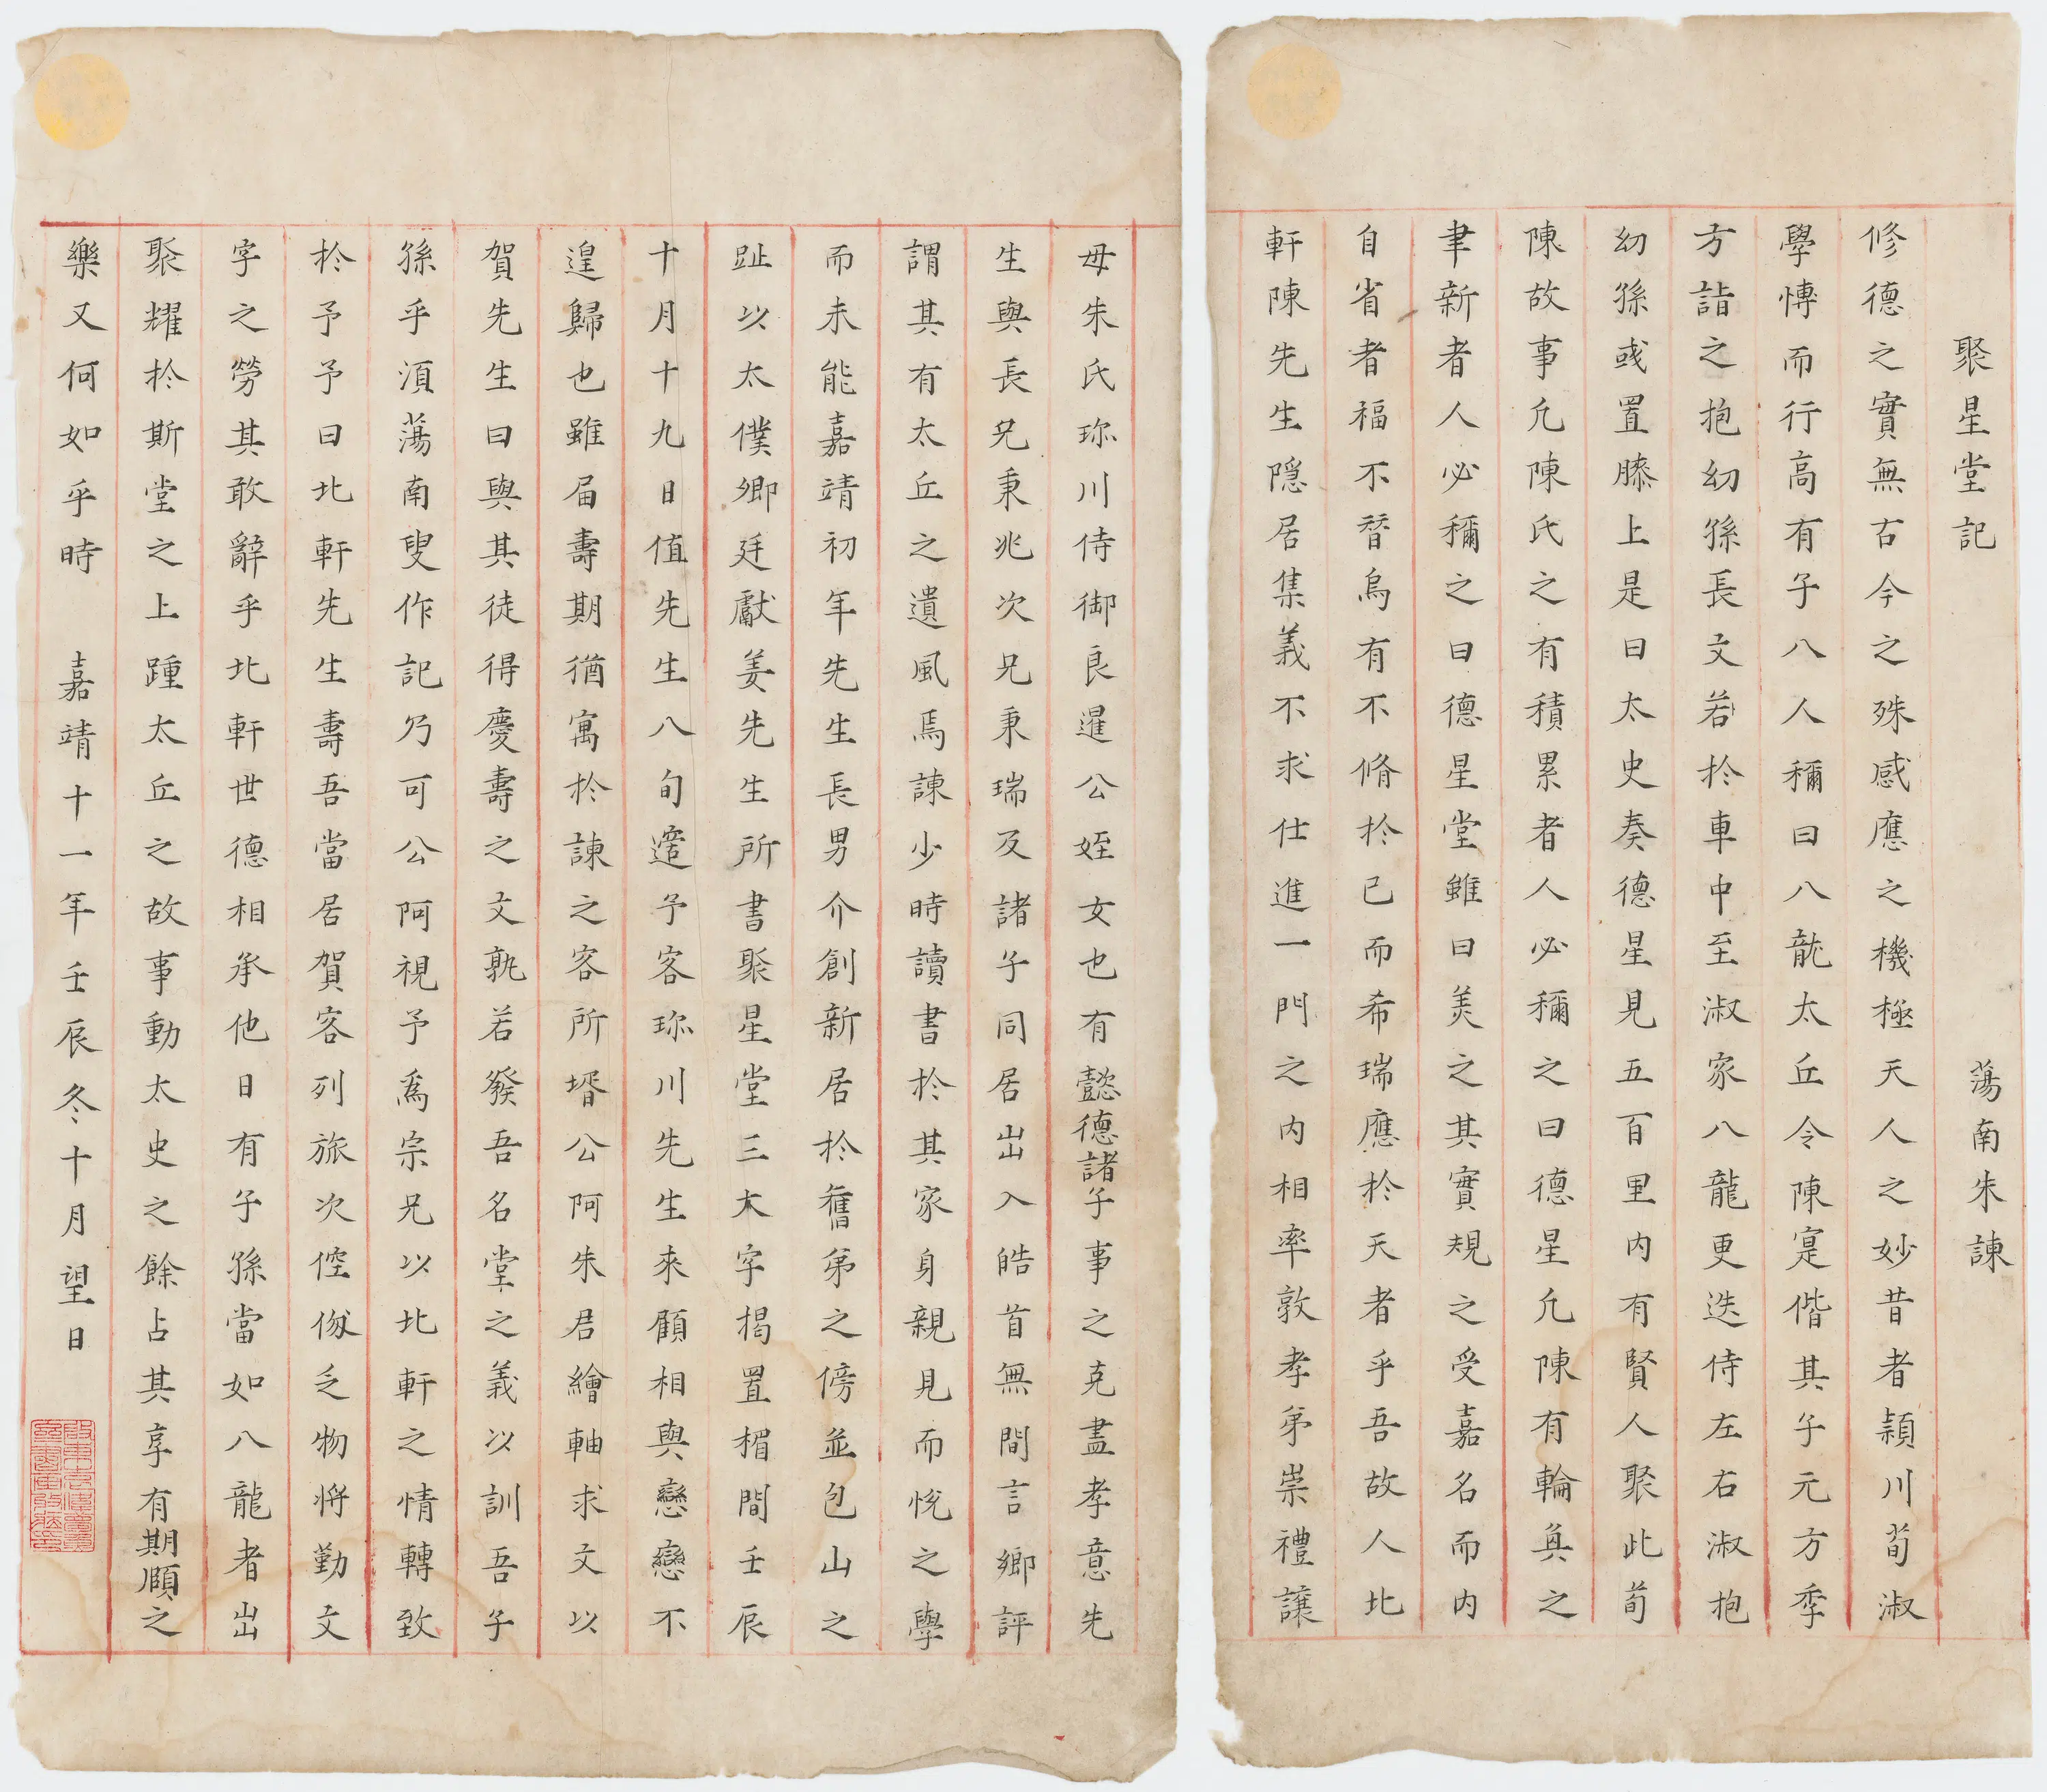 聚星堂記　蕩南朱諫
修德之實無古今之殊感應之機極天人之妙昔者潁川荀淑
學愽而行髙有子八人稱曰八龍太丘令陳寔偕其子元方季
方詣之抱幼孫長文若於車中至淑家八龍更迭侍左右淑抱
幼孫彧置膝上是日太史奏德星見五百里内有賢人聚此荀
陳故事凢陳氏之有積累者人必稱之曰德星凢陳有輪奐之
聿新者人必稱之曰德星堂雖曰美之其實䂓之受嘉名而内
自省者福不朁烏有不脩於已而希瑞應於天者乎吾故人北
軒陳先生隠居集義不求仕進一門之内相率敦孝弟崇禮讓
毋朱氏珎川侍御良暹公姪女也有懿德諸子事之克盡孝意先
生與長兄秉兆次兄秉瑞及諸子同居出入皓首無間言鄉評
謂其有太丘之遺風焉諫少時讀書於其家身親見而悅之學
而未能嘉靖初年先生長男介創新居於舊第之傍並包山之
趾以太僕卿廷獻姜先生所書聚星堂三大字揭置楣間壬辰
十月十九日值先生八旬簉予客珎川先生來顧相與戀戀不
遑歸也雖届壽期猶寓於諫之客所壻公阿朱君繪軸求文以
賀先生曰與其徒得慶壽之文孰若發吾名堂之義以訓吾子
孫乎湏蕩南叟作記乃可公阿視予為宗兄以北軒之情轉致
於予予曰北軒先生壽吾當居賀客列旅次倥傯乏物將勤文
字之勞其敢辭乎北軒世德相承他日有子孫當如八龍者出
聚耀於斯堂之上踵太丘之故事動太史之餘占其享有期頥之
樂又何如乎時　嘉靖十一年壬辰冬十月望日